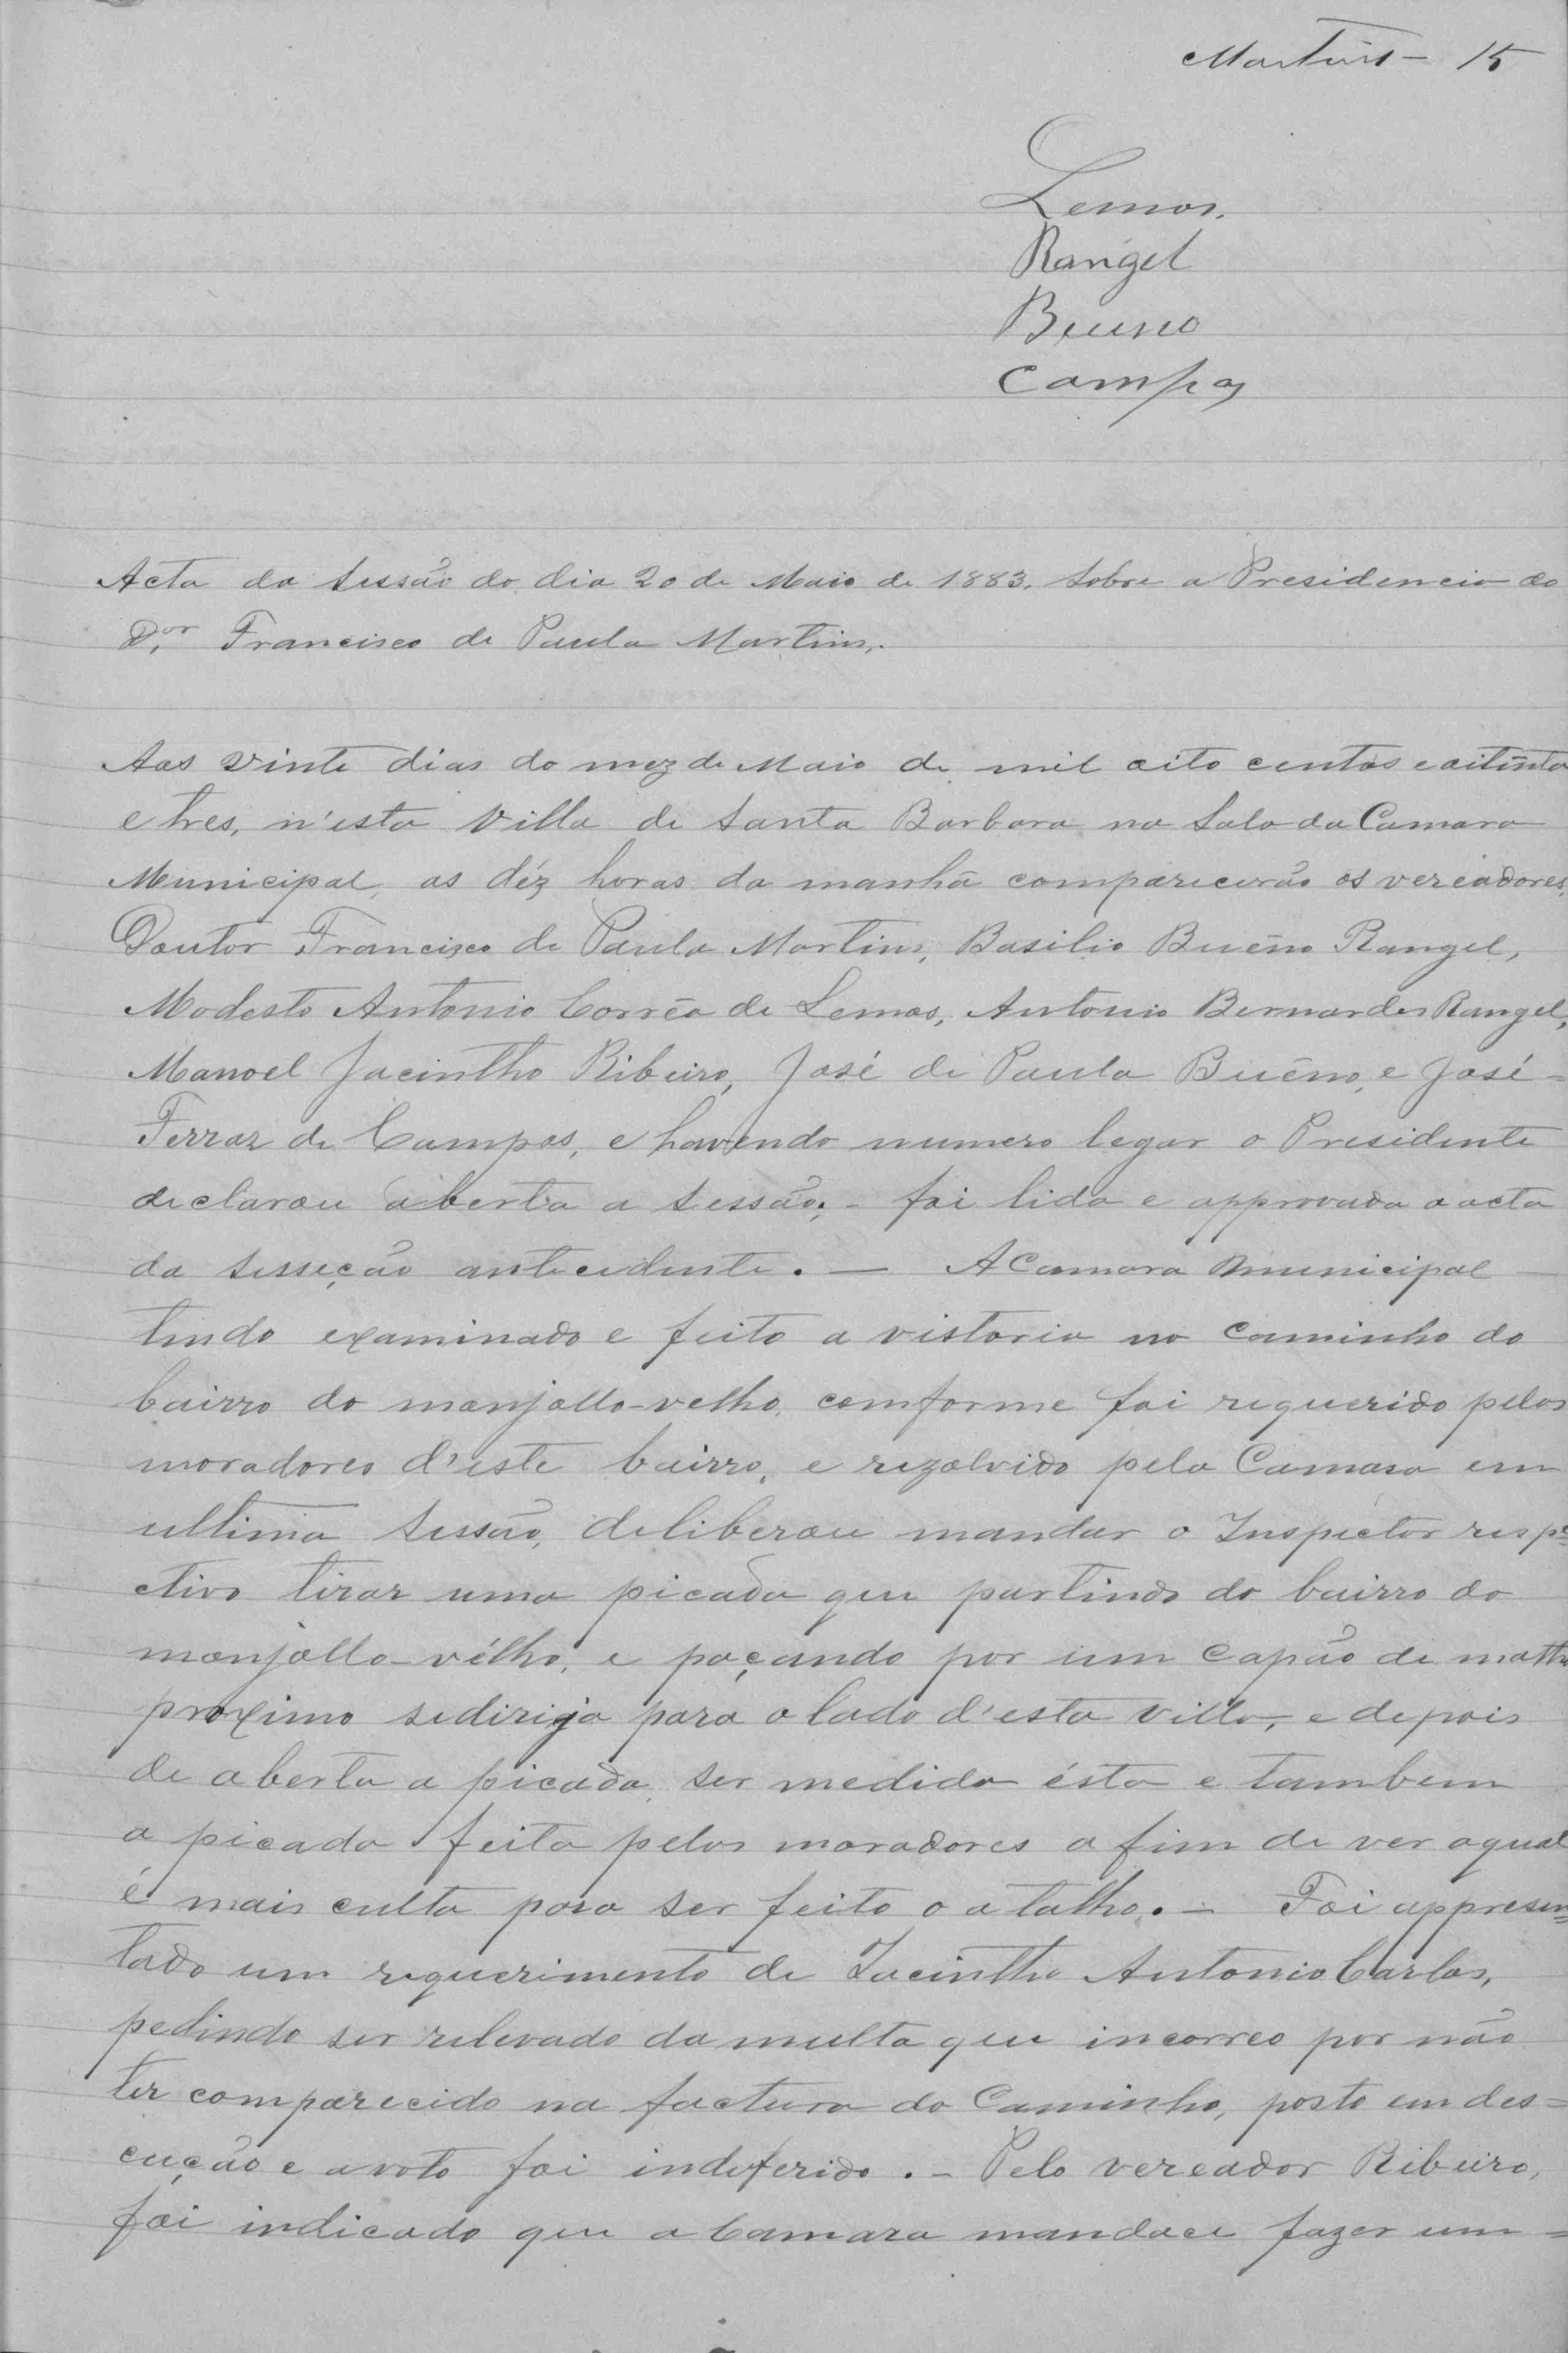 Martins - 15
Lemos.
Rangel
Bueno
Campos
Acta da sessão do dia 20 de Maio de 1883. sobre a Presidencia do
D.or Francisco de Paula Martins.
Aos vinte dias do mez de Maio de mil oito centos e oitenta
e tres, n'esta Villa de Santa Barbara na Sala da Camara
Municipal, as déz horas da manhã comparecerão os vereadores,
Doutor Francisco de Paula Martins, Basilio Bueno Rangel,
Modesto Antonio Corrêa de Lemos, Antonio Bernardes Rangel,
Manoel Jacintho Ribeiro, José de Paula Bueno, e José -
Ferraz de Campos, e havendo numero legar o Presidente
declarou aberta a sessão; - foi lida e approvada a acta
da sesseção antecedente. — A Camara Municipal —
tendo examinado e feito a vistoria no caminho do
bairro do manjollo-velho, comforme foi requerido pelos
moradores d'este bairro, e rezolvido pela Camara em
ultima sessão, deliberou mandar o Inspector respe=
ctivo tirar uma picada que partindo do bairro do
manjollo-vélho, e paçando por um capão de matto
proximo se dirija para o lado d'esta villa, e depois
de aberta a picada, ser medida ésta e tambem
a picada feita pelos moradores a fim de ver a qual
é mais culta para ser feito o atalho. - Foi appresen=
tado um requerimento de Jacintho Antonio Carlos,
pedindo ser relevado da multa que incorreo por não
ter comparecido na factura do Caminho, posto em des=
cução e a voto foi indeferido. - Pelo vereador Ribeiro,
foi indicado que a Camara mandace fazer um =